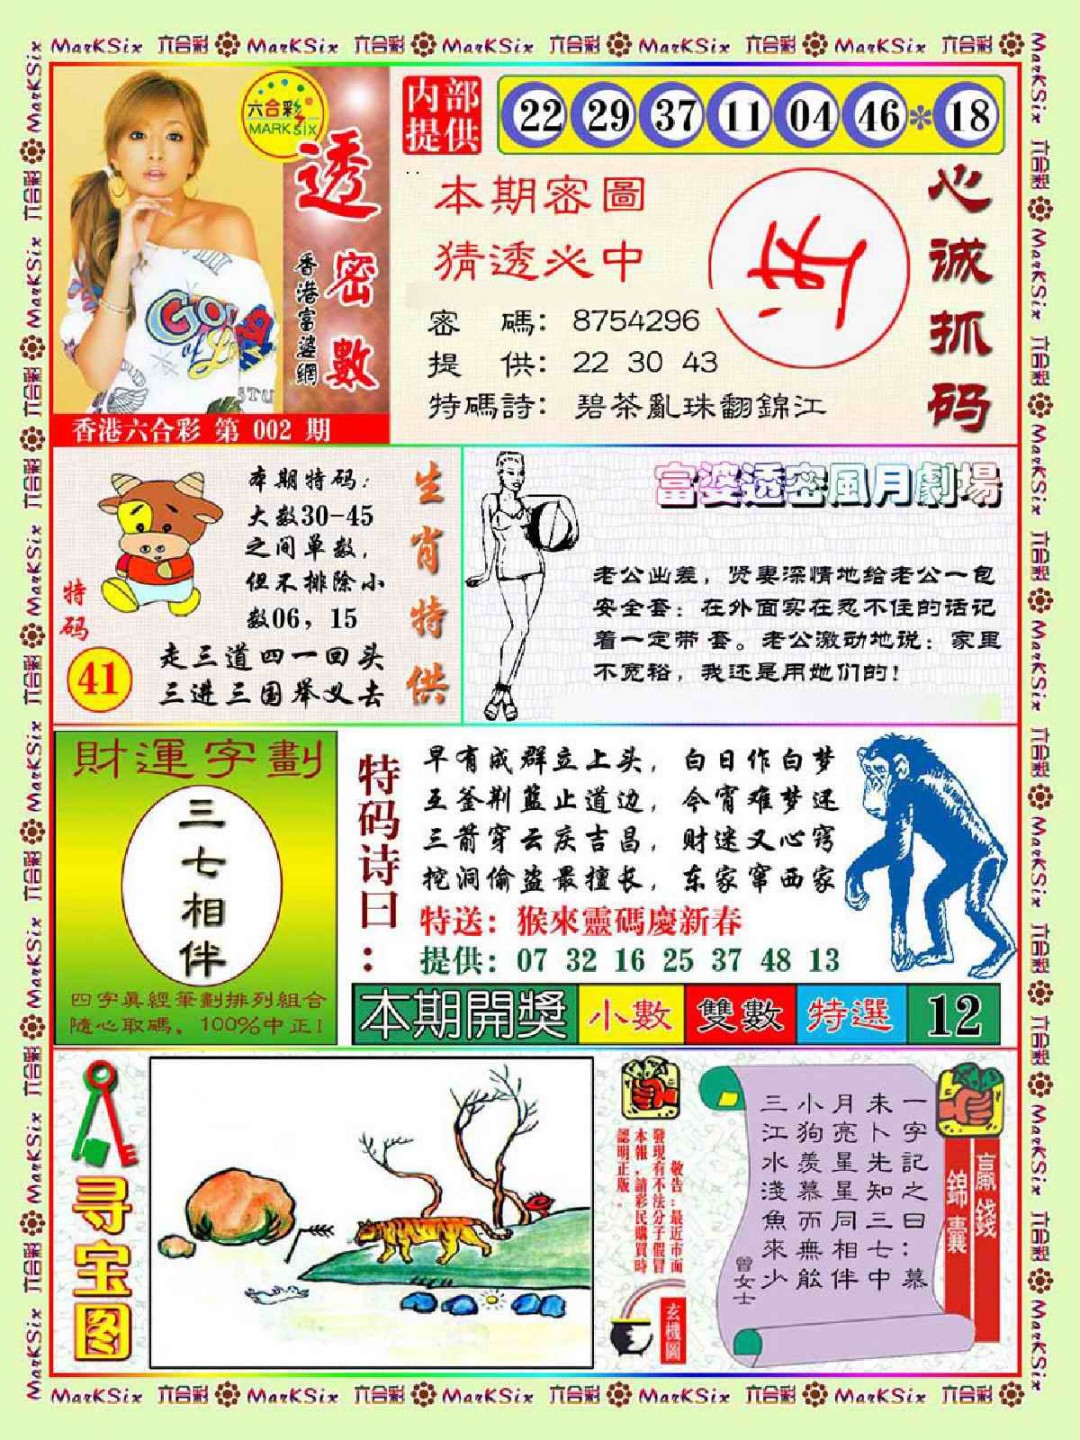 MarKSix 六合彩 MarKSix 六合彩 MarKSix 六合彩 MarKSix 六合彩 MarKSix 六合彩
六合彩
MARK SIX
透密數
香港富婆網
香港六合彩 第 002 期
内部
提供
22 29 37 11 04 46 * 18
本期密圖
猜透必中
密 碼： 8754296
提 供： 22 30 43
特碼詩： 碧茶亂珠翻錦江
心诚抓码
本期特码：
大数30-45
之间单数，
但不排除小
数06，15
特码
41
走三道四一回头
三进三国举义去
生肖特供
富婆透密風月劇場
老公出差，贤妻深情地给老公一包
安全套：在外面实在忍不住的话记
着一定带套。老公激动地说：家里
不宽裕，我还是用她们的！
財運字劃
三七相伴
四字真經筆劃排列組合
隨心取碼，100%中正！
特码诗曰：
早有成群立上头，白日作白梦
互釜荆篮止道边，今宵难梦还
三箭穿云庆吉昌，财迷又心窍
挖洞偷盗最擅长，东家窜西家
特送：猴來靈碼慶新春
提供：07 32 16 25 37 48 13
本期開獎 小數 雙數 特選 12
寻宝图
敬告：最近市面
發現有不法分子假冒
本報，請彩民購買時
認明正版．
玄機圖
贏錢
錦囊
一字記之曰：慕
未卜先知三七中
月亮星星同相伴
小狗羨慕而無能
三江水淺魚來少
曾女士
MarKSix 六合彩 MarKSix 六合彩 MarKSix 六合彩 MarKSix 六合彩 MarKSix 六合彩